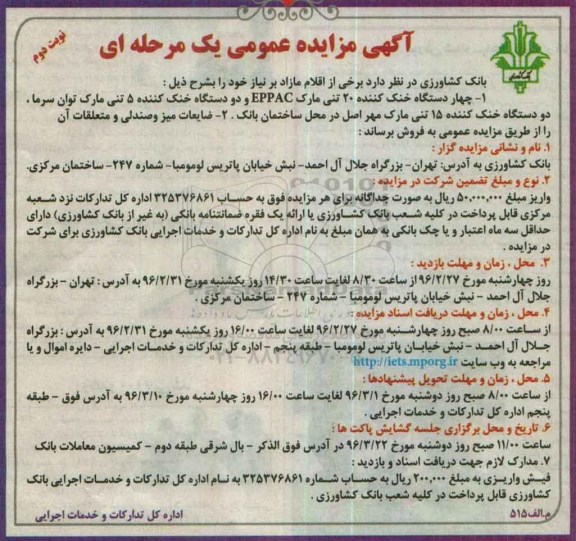 نوبت دوم
آگهی مزایده عمومی یک مرحله ای
بانک کشاورزی در نظر دارد برخی از اقلام مازاد بر نیاز خود را بشرح ذیل :
۱- چهار دستگاه خنک کننده ۲۰ تنی مارک EPPAC و دو دستگاه خنک کننده ۵ تنی مارک توان سرما ،
دو دستگاه خنک کننده ۱۵ تنی مارک مهر اصل در محل ساختمان بانک . ۲- ضایعات میز وصندلی و متعلقات آن
را از طریق مزایده عمومی به فروش برساند :
۱. نام و نشانی مزایده گزار :
بانک کشاورزی به آدرس: تهران- بزرگراه جلال آل احمد- نبش خیابان پاتریس لومومبا- شماره ۲۴۷- ساختمان مرکزی.
۲. نوع و مبلغ تضمین شرکت در مزایده :
واریز مبلغ ۵۰,۰۰۰,۰۰۰ ریال به صورت جداگانه برای هر مزایده فوق به حساب ۳۲۵۳۷۶۸۶۱ اداره کل تدارکات نزد شعبه
مرکزی قابل پرداخت در کلیه شعب بانک کشاورزی یا ارائه یک فقره ضمانتنامه بانکی (به غیر از بانک کشاورزی) دارای
حداقل سه ماه اعتبار و یا چک بانکی به همان مبلغ به نام اداره کل تدارکات و خدمات اجرایی بانک کشاورزی برای شرکت
در مزایده .
۳. محل ، زمان و مهلت بازدید :
روز چهارشنبه مورخ ۹۶/۲/۲۷ از ساعت ۸/۳۰ لغایت ساعت ۱۴/۳۰ روز یکشنبه مورخ ۹۶/۲/۳۱ به آدرس : تهران - بزرگراه
جلال آل احمد - نبش خیابان پاتریس لومومبا - شماره ۲۴۷ - ساختمان مرکزی .
۴. محل ، زمان و مهلت دریافت اسناد مزایده :
از ساعت ۸/۰۰ صبح روز چهارشنبه مورخ ۹۶/۲/۲۷ لغایت ساعت ۱۶/۰۰ روز یکشنبه مورخ ۹۶/۲/۳۱ به آدرس : بزرگراه
جلال آل احمد - نبش خیابان پاتریس لومومبا - طبقه پنجم - اداره کل تدارکات و خدمات اجرایی - دایره اموال و یا
مراجعه به وب سایت http://iets.mporg.ir
۵. محل ، زمان و مهلت تحویل پیشنهادها :
از ساعت ۸/۰۰ صبح روز دوشنبه مورخ ۹۶/۳/۱ لغایت ساعت ۱۶/۰۰ روز چهارشنبه مورخ ۹۶/۳/۱۰ به آدرس فوق - طبقه
پنجم اداره کل تدارکات و خدمات اجرایی .
۶. تاریخ و محل برگزاری جلسه گشایش پاکت ها :
ساعت ۱۱/۰۰ صبح روز دوشنبه مورخ ۹۶/۳/۲۲ در آدرس فوق الذکر - بال شرقی طبقه دوم - کمیسیون معاملات بانک
۷. مدارک لازم جهت دریافت اسناد و بازدید :
فیش واریزی به مبلغ ۲۰۰,۰۰۰ ریال به حساب شماره ۳۲۵۳۷۶۸۶۱ به نام اداره کل تدارکات و خدمات اجرایی بانک
کشاورزی قابل پرداخت در کلیه شعب بانک کشاورزی .
اداره کل تدارکات و خدمات اجرایی
م.الف۵۱۵